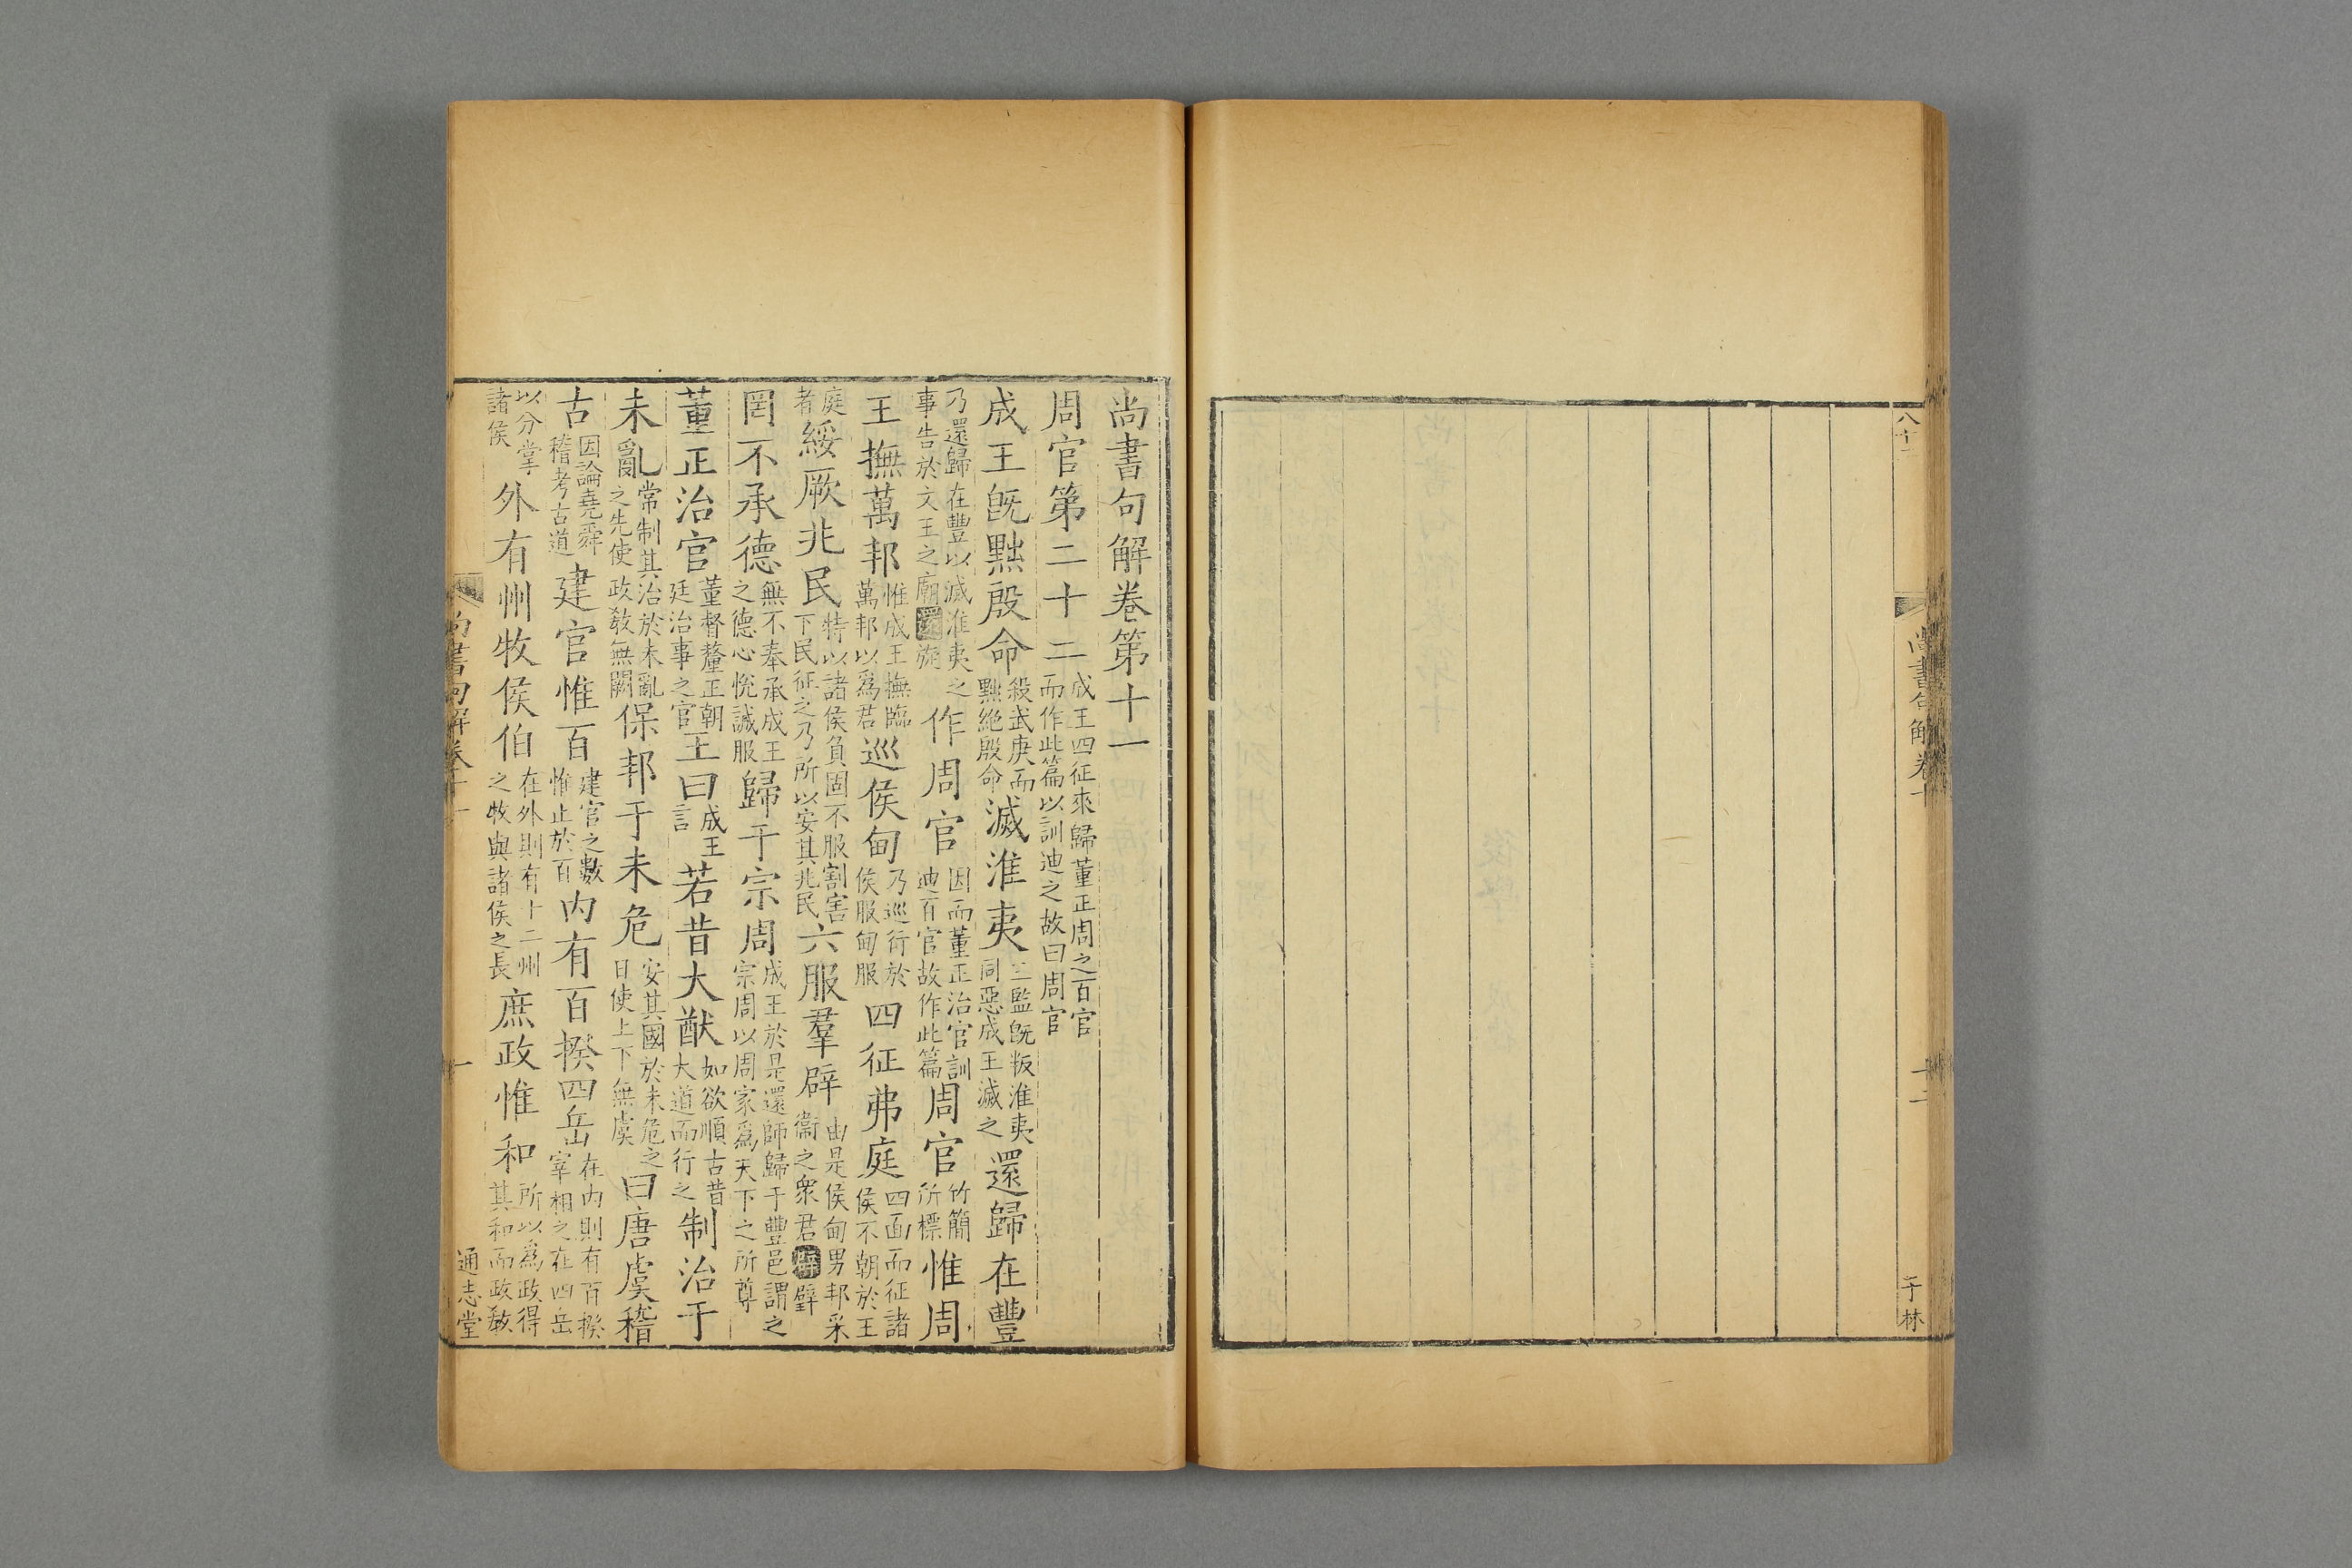 尚書句解卷十
十二
于林
尚書句解卷第十一
周官第二十二成王四征來歸董正周之百官而作此篇以訓迪之故曰周官
成王旣黜殷命殺武庚而黜絶殷命滅淮夷三監旣叛淮夷同惡成王滅之還歸在豐
乃還歸在豐以滅淮夷之事告於文王之廟還旋作周官因而董正治官訓迪百官故作此篇周官竹簡所標惟周
王撫萬邦惟成王撫臨萬邦以爲君巡侯甸乃巡行於侯服甸服四征弗庭四面而征諸侯不朝於王
庭者綏厥兆民特以諸侯負固不服割害下民征之乃所以安其兆民六服羣辟由是侯甸男邦采衞之衆君辟璧
罔不承德無不奉承成王之德心悅誠服歸于宗周成王於是還師歸于豐邑謂之宗周以周家爲天下之所尊
董正治官董督釐正朝廷治事之官王曰成王言若昔大猷如欲順古昔大道而行之制治于
未亂常制其治於未亂之先使政敎無闕保邦于未危安其國於未危之日使上下無虞曰唐虞稽
古因論堯舜稽考古道建官惟百建官之數惟止於百内有百揆四岳在内則有百揆宰相之在四岳
以分掌諸侯外有州牧侯伯在外則有十二州之牧與諸侯之長庶政惟和所以爲政得其和而政敎
尚書句解卷十一
一
通志堂